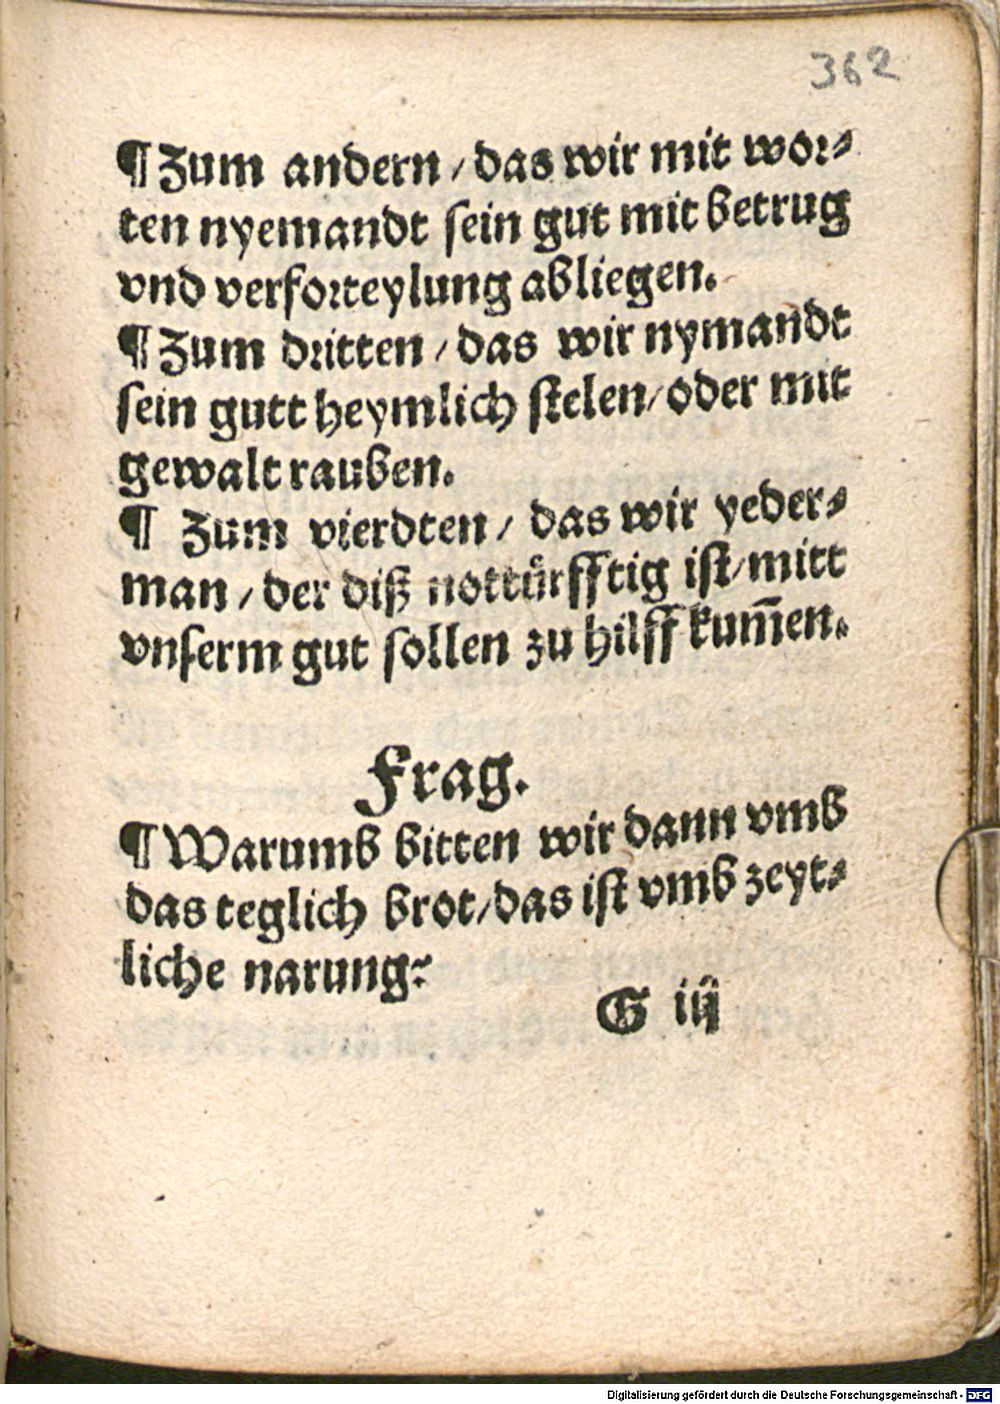 362
¶ Zum andern / das wir mit wor⸗
ten nyemandt sein gut mit betrug
vnd verforteylung abliegen.
¶ Zum dritten / das wir nymandt
sein gutt heymlich stelen / oder mit
gewalt rauben.
¶ Zum vierdten / das wir yeder⸗
man / der diß nottürfftig ist / mitt
vnserm gut sollen zu hilff kum̄en.
Frag.
¶ Warumb bitten wir dann vmb
das teglich brot / das ist vmb zeyt⸗
liche narung?
G iij
Digitalisierung gefördert durch die Deutsche Forschungsgemeinschaft - DFG